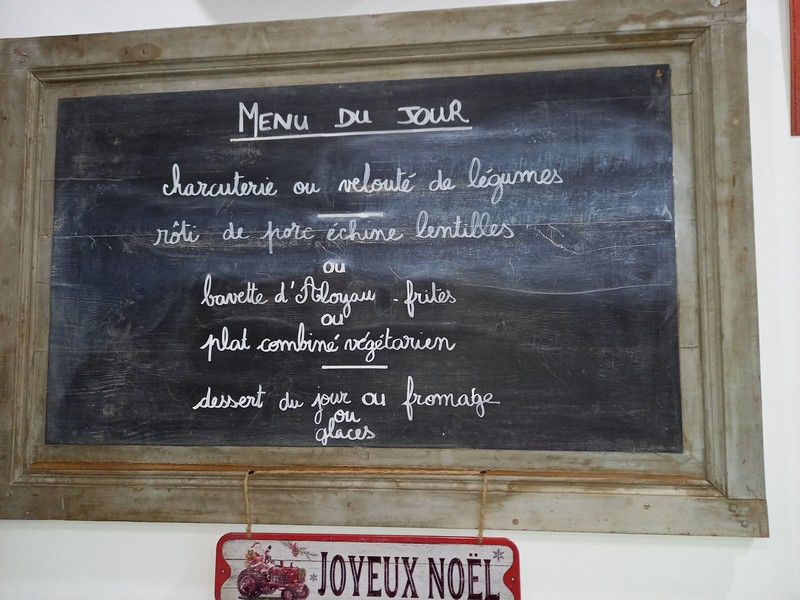 MENU DU JOUR
charcuterie ou velouté de légumes
rôti de porc échine lentilles
ou
bavette d'Aloyau - frites
ou
plat combiné végétarien
dessert du jour ou fromage
ou
glaces
JOYEUX NOËL